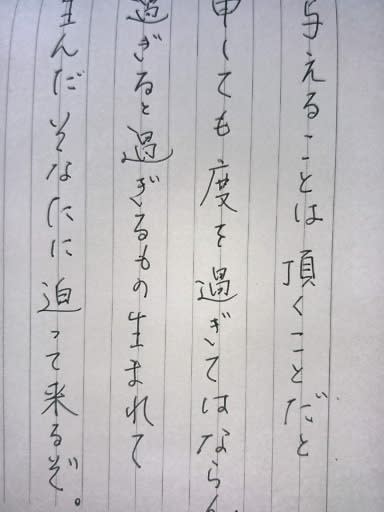 与えることは頂くことだと
申しても度を過ぎてはならん
過ぎると過ぎるもの生まれて
生んだそなたに迫って来るぞ。